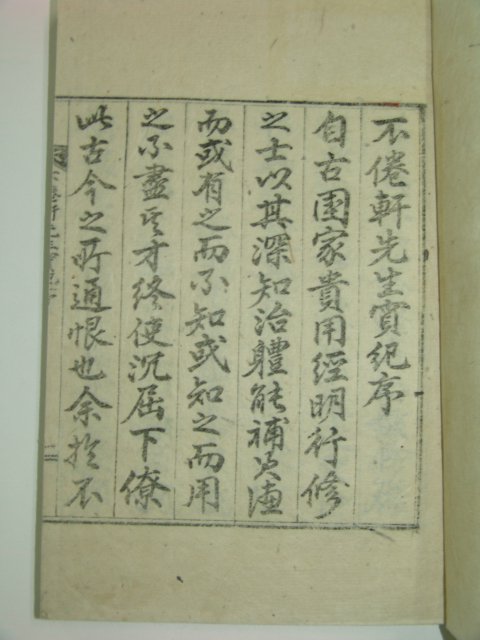 不倦軒先生實紀序
自古國家貴用經明行修
之士以其深知治體能補君德
而或有之而不知或知之而用
之不盡其才終使沉屈下僚
此古今之所通恨也余於不